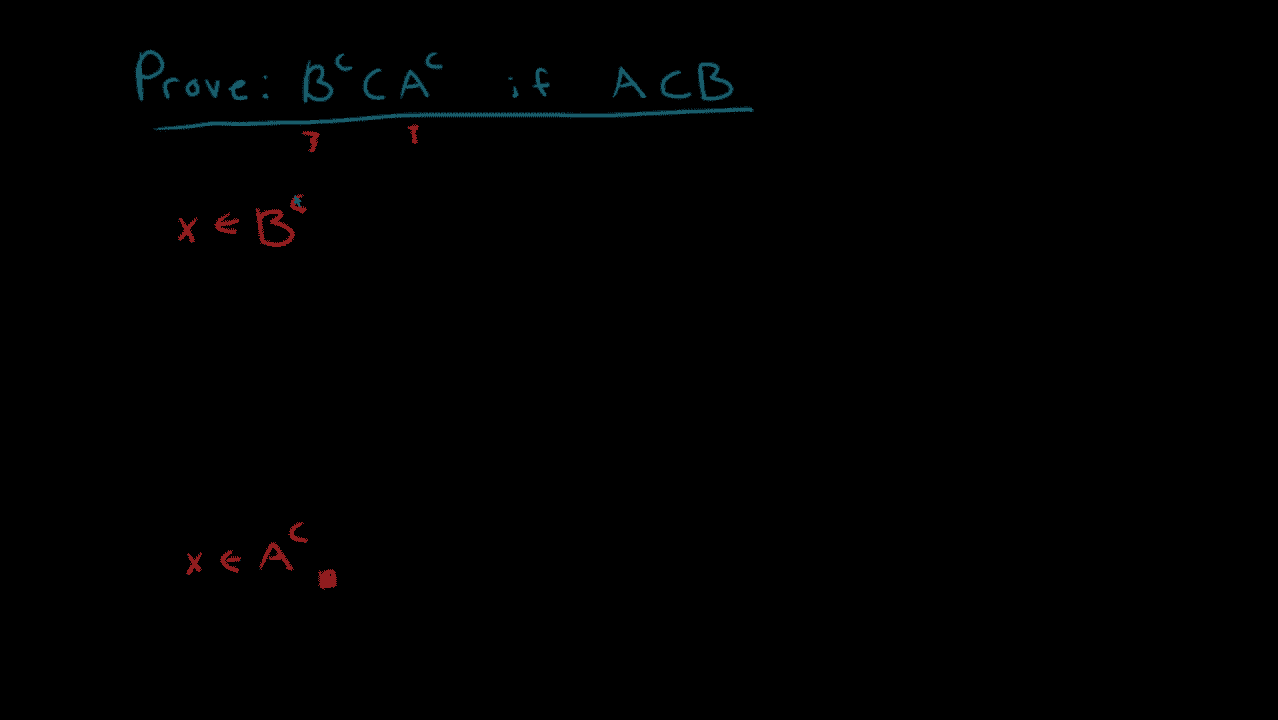 Prove: Bᶜ ⊂ Aᶜ if A ⊂ B
x ∈ Bᶜ
x ∈ Aᶜ